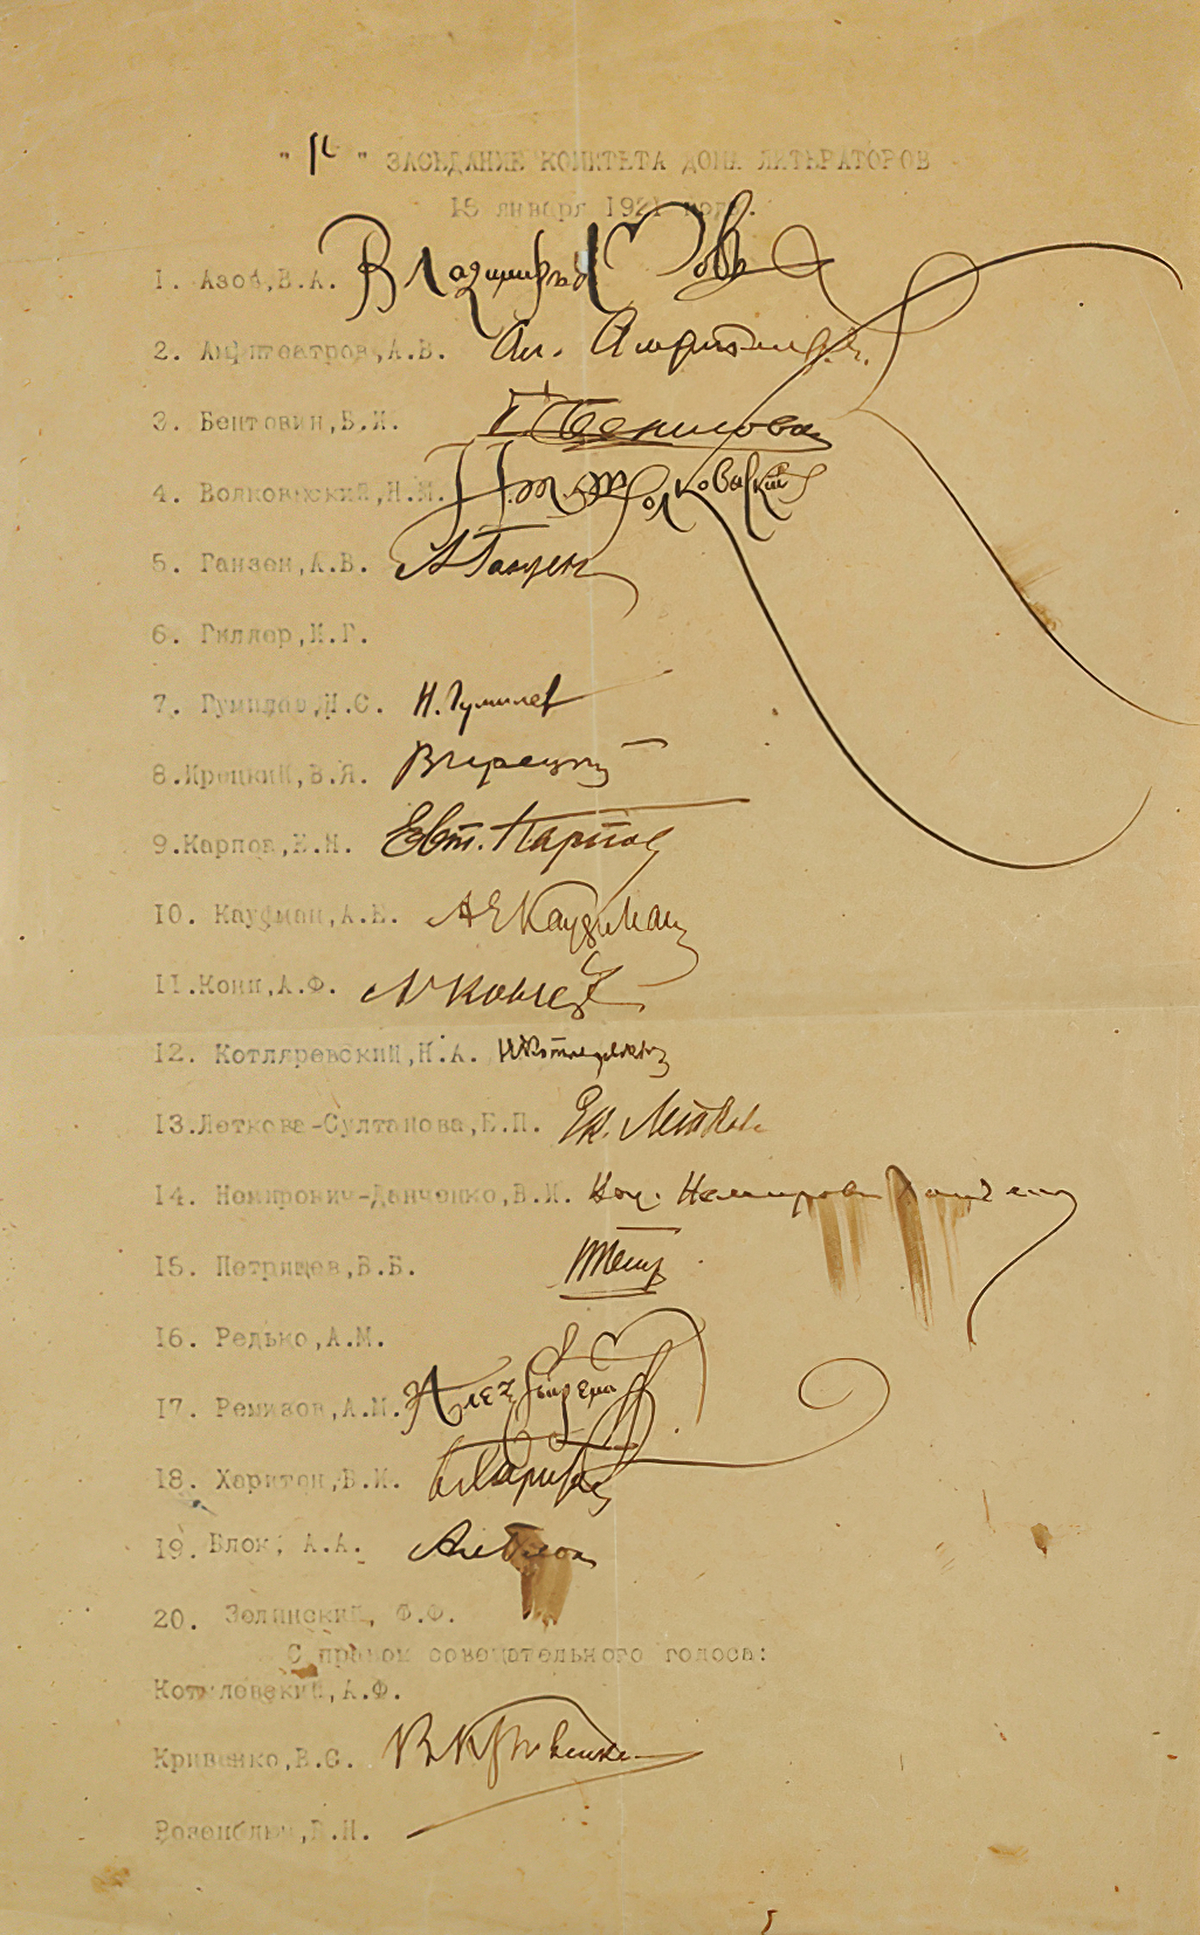 " " ЗАСЕДАНИЕ КОМИТЕТА ДОМА ЛИТЕРАТОРОВ
15 января 1921 года.
1. Азов,В.А. Владимир Азовъ
2. Амфитеатров,А.В. Ал. Амфитеатров
3. Бентовин,Б.И.
4. Волковысский,Н.М. Волковысский
5. Ганзен,А.В. А Ганзен
6. Гиллер,И.Г.
7. Гумилев,Н.С. Н. Гумилев
8.Ирецкий,В.Я. В Ирецкий
9.Карпов,Е.П. Евт. Карпов
10. Кауфман,А.Е. А Е Кауфман
11.Кони,А.Ф.
12. Котляревский,Н.А. Н Котляревский
13.Леткова-Султанова,Е.П. Ек. Леткова
14. Немирович-Данченко,В.И. Вас. Немирович Данченко
15. Петрищев,А.Б.
16. Редько,А.М.
17. Ремизов,А.М. Алексей Ремизов
18. Харитон,Б.И. Б Харитон
19. Блок, А.А. Ал Блок
20. Зелинский, Ф.Ф.
С правом совещательного голоса:
Котиловский,А.Ф.
Кривенко,В.С. В Кривенко
Розенблюм,В.Н.